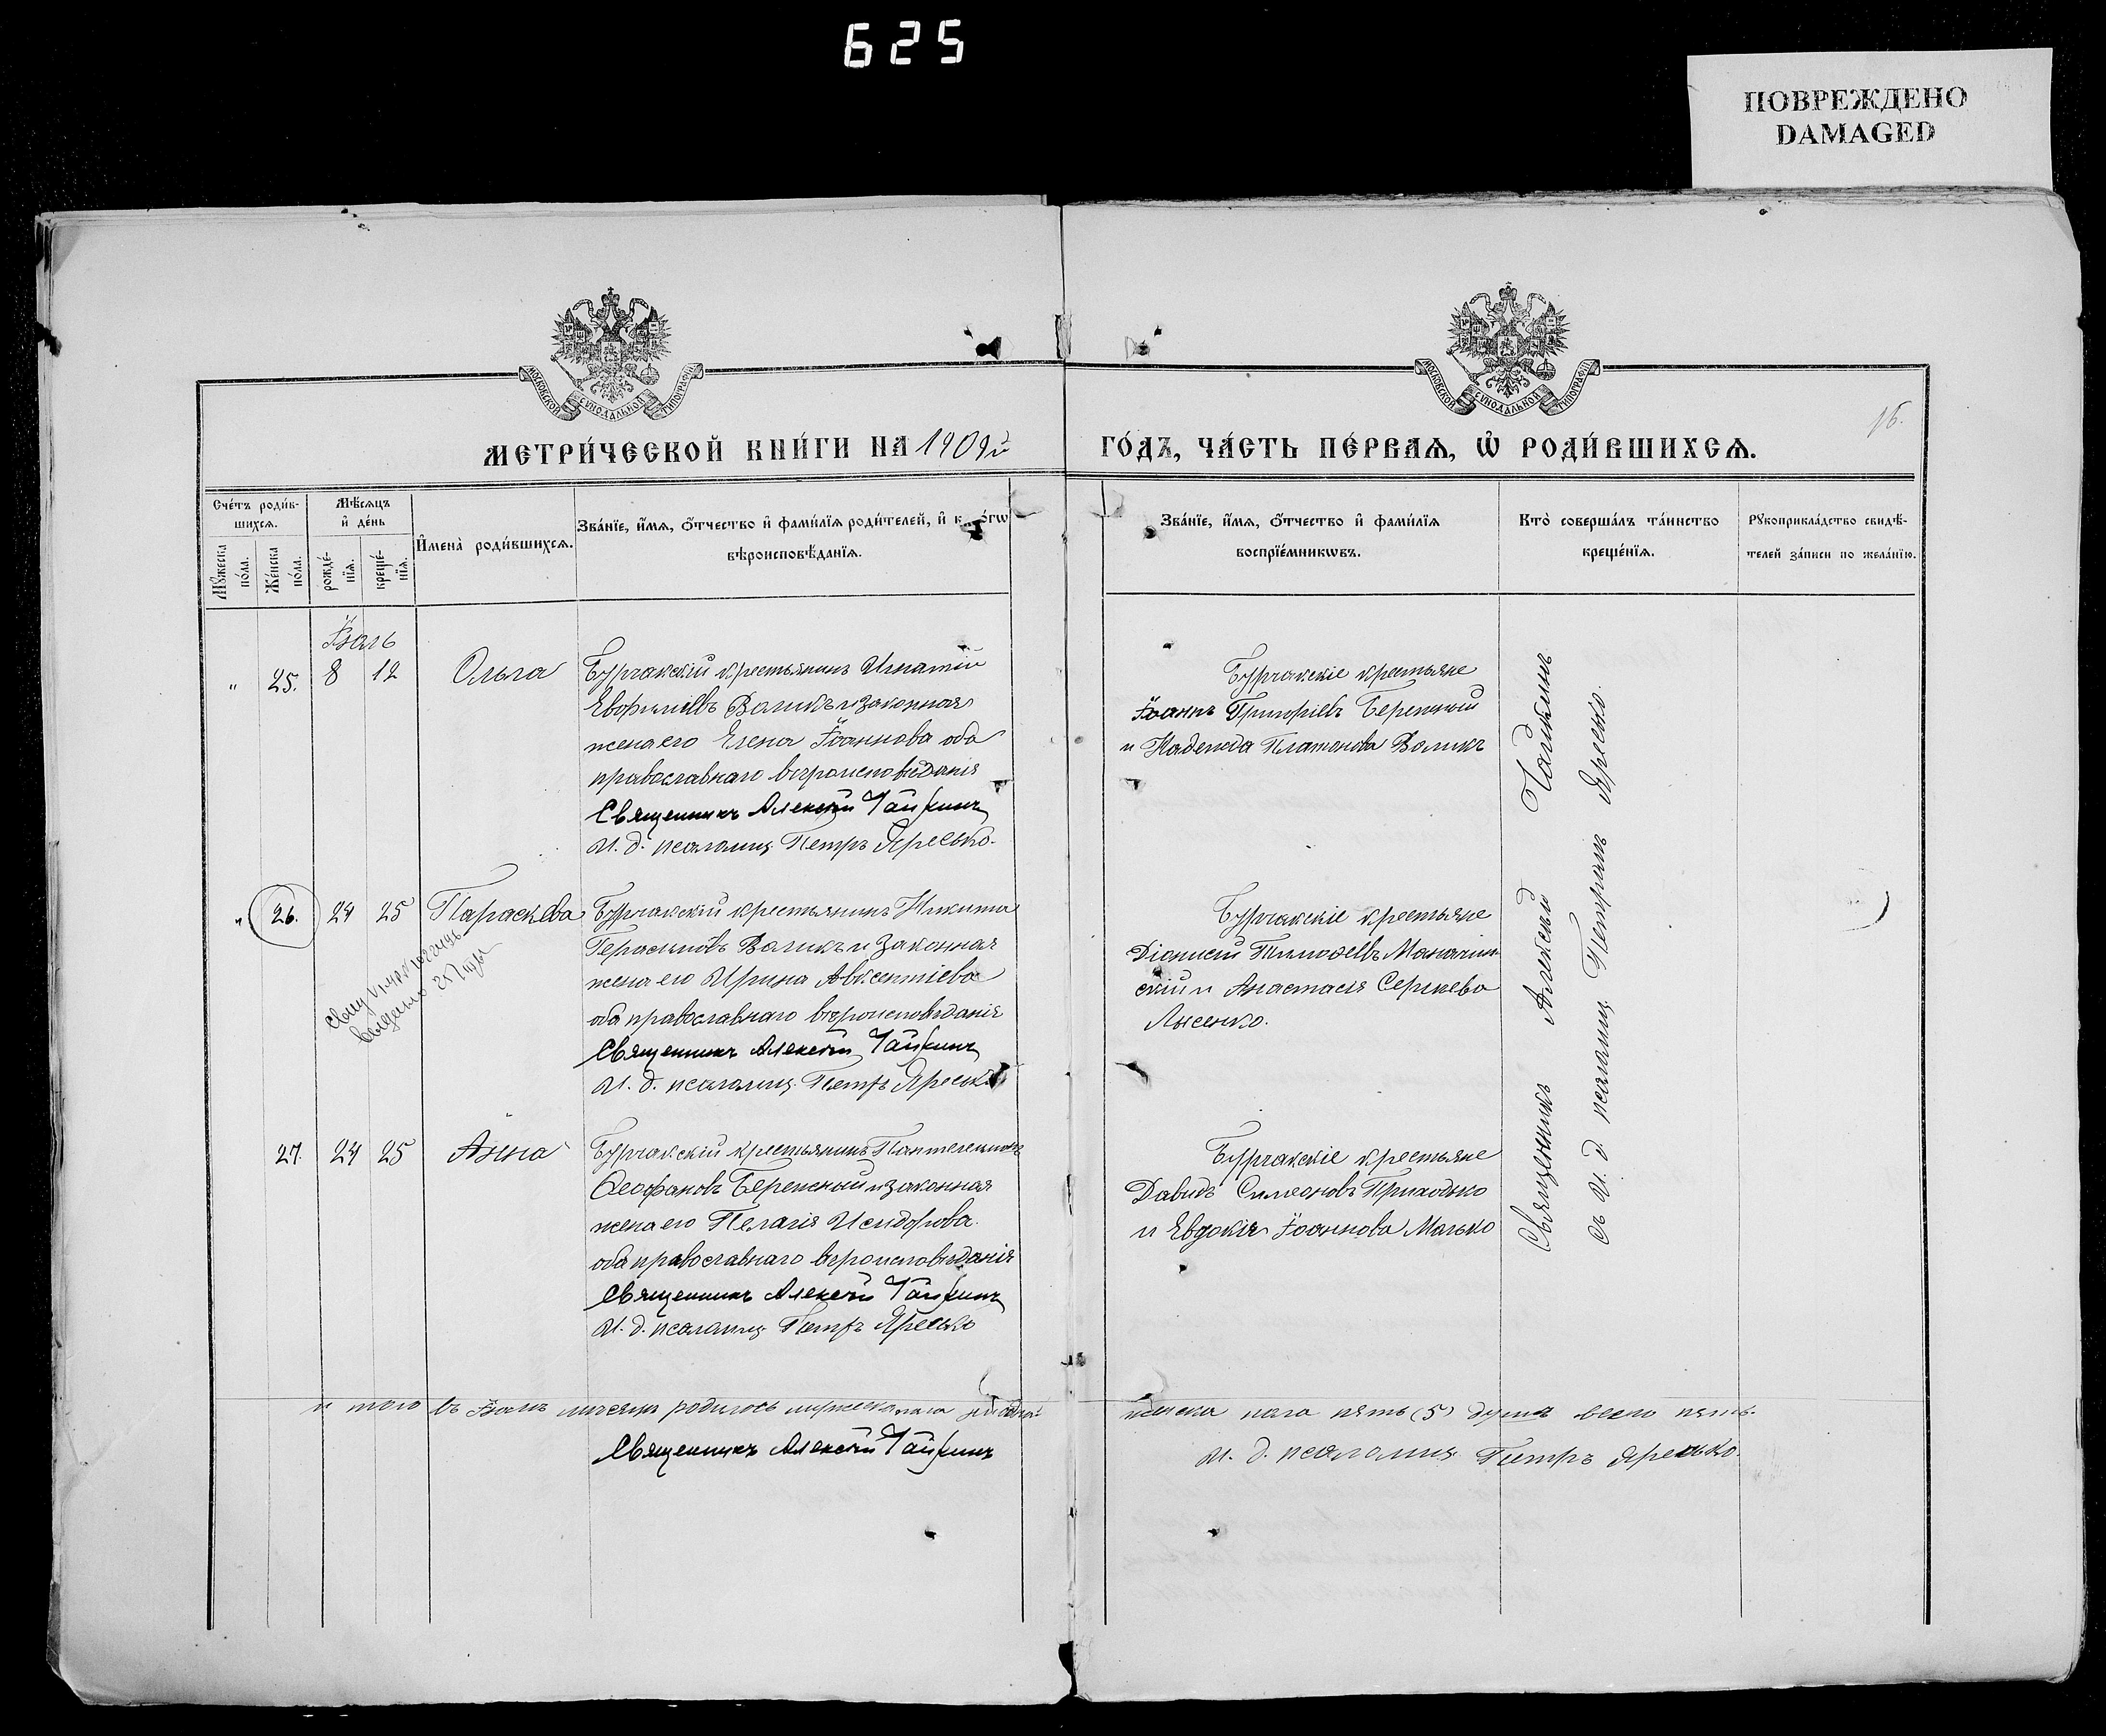 625
ПОВРЕЖДЕНО
DAMAGED
МОСКОВСКОЙ СѴНОДАЛЬНОЙ ТИПОГРАФІИ
МОСКОВСКОЙ СѴНОДАЛЬНОЙ ТИПОГРАФІИ
16.
МЕТРИ́ЧЕСКОЙ КНИ́ГИ НА 1909й
ГО́ДЪ, ЧА́СТЬ ПЕ́РВАѦ, Ѡ҆ РОДИ́ВШИХСѦ.
Сче́тъ роди́в-
шихсѧ.
Мѣ́сѧцъ
и҆ де́нь
Мꙋ́жеска
по́ла.
Же́нска
по́ла.
рожде́-
нїѧ.
креще́-
нїѧ.
И҆мена̀ роди́вшихсѧ.
Зва́нїе, и҆́мѧ, ѻ҆́тчество и҆ фами́лїѧ роди́телей, и҆
вѣроисповѣ́данїѧ.
Зва́нїе, и҆́мѧ, ѻ҆́тчество и҆ фами́лїѧ
воспрїе́мникѡвъ.
Кто̀ соверша́лъ та́инство
креще́нїѧ.
Рꙋкоприкла́дство свидѣ́-
телей за́писи по жела́нїю.
Іюль
" 25. 8 12 Ольга Бурчакскій крестьянинъ Игнатій
Евфиміевъ Воликъ и законная
жена его Елена Іоаннова оба
православнаго вѣроисповѣданія
Священникъ Алексѣй Чайкинъ
И. д. псаломщ. Петръ Яресько.
Бурчакскіе крестьяне
Іоаннъ Григоріевъ Бережный
и Надежда Платонова Воликъ
" 26. 24 25 Параскева Бурчакскій крестьянинъ Никита
Герасимовъ Воликъ и законная
жена его Ирина Авксентіева
оба православнаго вѣроисповѣданія
Священникъ Алексѣй Чайкинъ
И. д. псаломщ. Петръ Яресько
выдано 25 года
Бурчакскіе крестьяне
Діонисій Тимофеевъ
скій и Анастасія Сергіева
Лысенко.
27. 24 25 Анна Бурчакскій крестьянинъ Пантелеимонъ
Ѳеофановъ Бережный и законная
жена его Пелагія Исидорова
оба православнаго вѣроисповѣданія
Священникъ Алексѣй Чайкинъ
И. д. псаломщ. Петръ Яресько
Бурчакскіе крестьяне
Давидъ Симеоновъ Приходько
и Евдокія Іоаннова Малько
Священникъ Алексѣй Чайкинъ
съ И. д. псаломщ. Петромъ Яресько.
и того въ Іюлѣ мѣсяцѣ родилось мужеска пола
женска пола пять (5) душъ всего пять.
Священникъ Алексѣй Чайкинъ
И. д. псаломщ. Петръ Яресько.